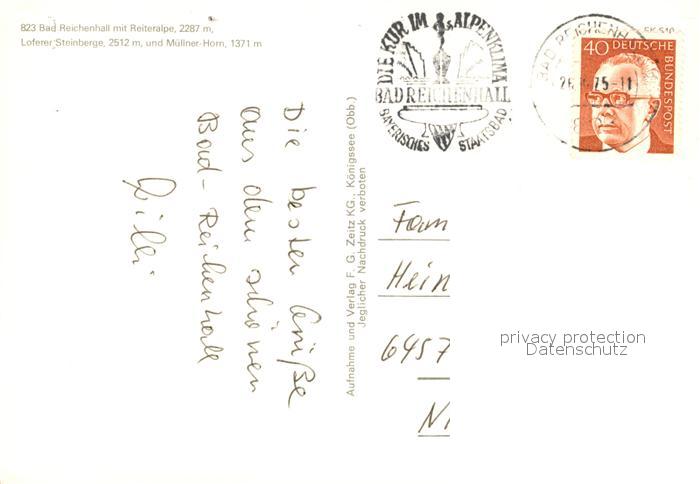 823 Bad Reichenhall mit Reiteralpe, 2287 m,
Loferer Steinberge, 2512 m, und Müllner-Horn, 1371 m
Die besten Grüße
aus dem schönen
Bad-Reichenhall
Willi
Aufnahme und Verlag F. G. Zeitz KG., Königssee (Obb.)
Jeglicher Nachdruck verboten
DIE KUR IM ALPENKLIMA
BAD REICHENHALL
BAYERISCHES STAATSBAD
BAD REICHENHALL
75-11
40 DEUTSCHE
BUNDESPOST
Fam
Hein
6457
privacy protection
Datenschutz